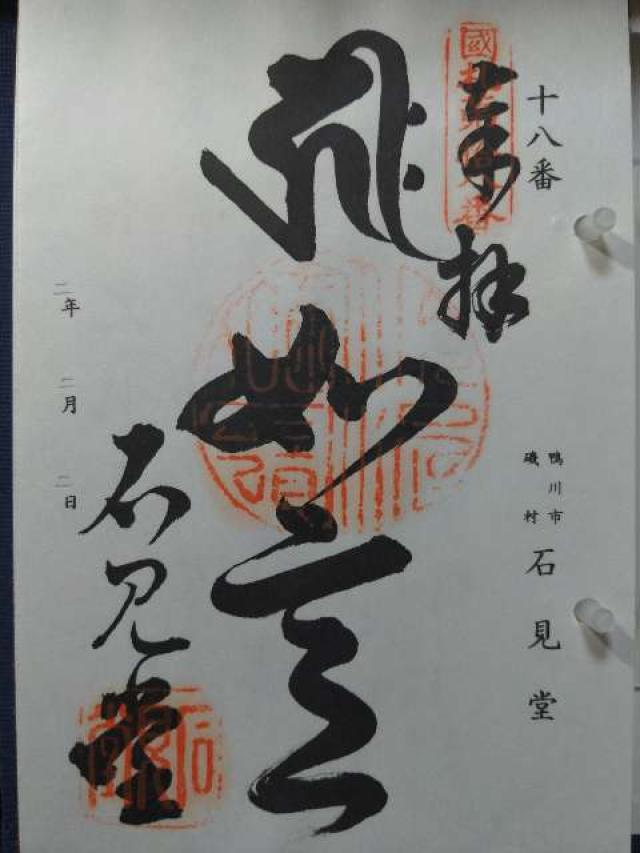 十八番
鴨川市
磯村
石見堂
奉拝
如意
石見堂
二年 二月 二日